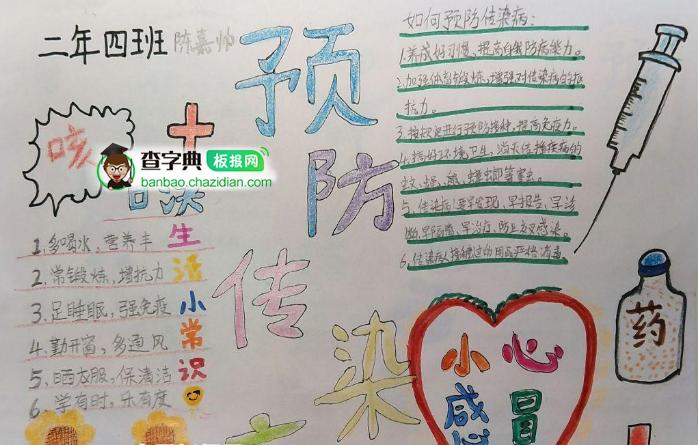 二年四班 陈嘉帅
预防传染
咳
查字典 板报网
banbao.chazidian.com
口诀
生活小常识
1、多喝水，营养丰
2、常锻炼，增抗力
3、足睡眠，强免疫
4、勤开窗，多通风
5、晒衣服，保清洁
6、学有时，乐有度
如何预防传染病：
1.养成好习惯，提高自我防病能力。
2.加强体育锻炼，增强对传染病的抵
抗力。
3、按规定进行预防接种，提高免疫力。
4、搞好环境卫生，消灭传播疾病的
蚊、蝇、鼠、蟑螂等害虫。
5、传染病要早发现、早报告、早诊
断、早隔离、早治疗、防止交叉感染。
6、传染病人接触过的用品严格消毒
药
小心
感冒